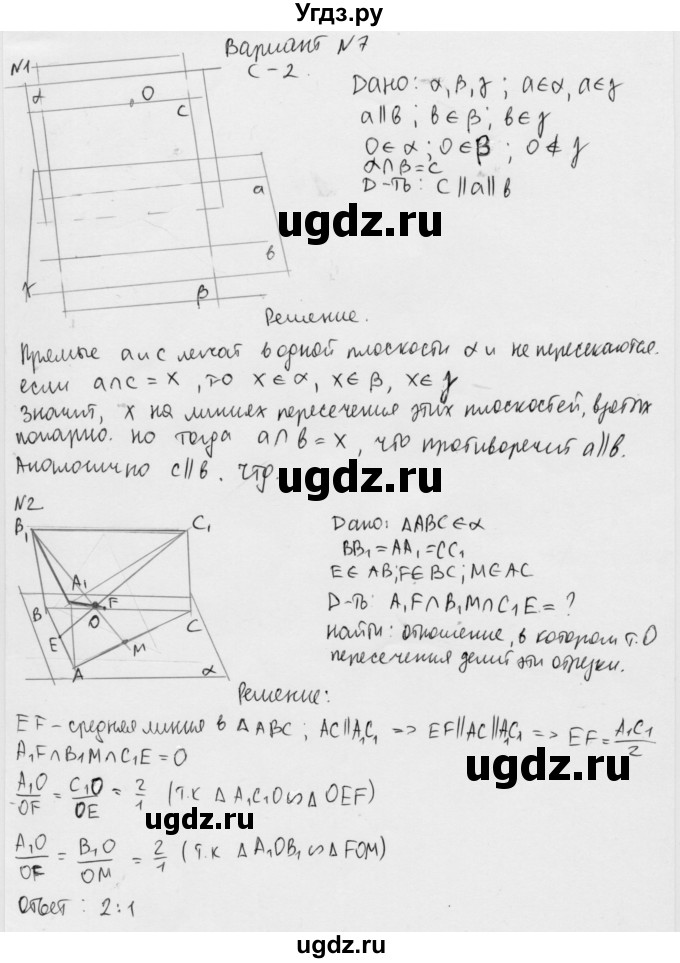 Угдз.ру
Вариант №7
С-2.
№1
Дано: α, β, γ ; a∈α, a∈γ
a∥b ; b∈β ; b∈γ
O∈α ; O∈β ; O∉γ
α∩β=c
Д-ть: c∥a∥b
α
O
c
a
b
γ
β
ugdz.ru
Решение.
Прямые a и c лежат в одной плоскости α и не пересекаются.
если a∩c = X , то X∈α, X∈β, X∈γ
Значит, X на линиях пересечения этих плоскостей, взятых
попарно. но тогда a∩b=X, что противоречит a∥b.
Аналогично c∥b. чтд.
ugdz.ru
№2
Дано: △ABC∈α
BB₁=AA₁=CC₁
E∈AB; F∈BC; M∈AC
Д-ть: A₁F∩B₁M∩C₁E=?
найти: отношение, в котором т. O
пересечения делит эти отрезки.
B₁
C₁
A₁
B
F
O
C
E
M
A
α
ugdz.ru
Решение:
EF - средняя линия в △ABC ; AC∥A₁C₁ => EF∥AC∥A₁C₁ => EF=A₁C₁/2
A₁F∩B₁M∩C₁E=O
A₁O/OF = C₁O/OE = 2/1 (т.к △A₁C₁O∽△OEF)
ugdz.ru
A₁O/OF = B₁O/OM = 2/1 (т.к △A₁OB₁∽△FOM)
Ответ: 2:1
ugdz.ru